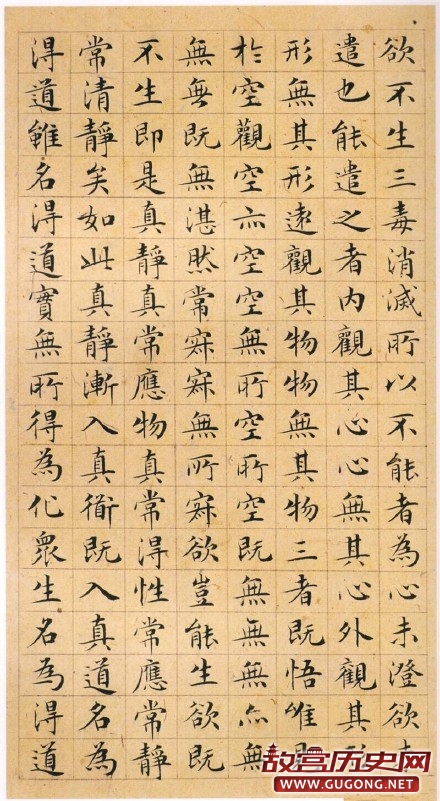 欲不生三毒消滅所以不能者為心未澄欲
遣也能遣之者内觀其心心無其心外觀其
形無其形遠觀其物物無其物三者既悟唯
於空觀空亦空空無所空所空既無無無亦無
無無既無湛然常寂寂無所寂欲豈能生欲既
不生即是真靜真常應物真常得性常應常靜
常清靜矣如此真靜漸入真衜既入真道名為
得道雖名得道實無所得為化衆生名為得道
故宫历史网
WWW.GUGONG.NET